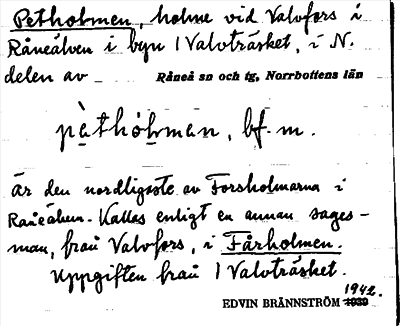 Petholmen, holme vid Valvfors i
Råneälven i byn 1 Valvträsket, i N.
delen av Råneå sn och tg, Norrbottens län
pàthòlmαn, bf. m.
Är den nordligaste av Forsholmarna i
Råneälven. Kallas enligt en annan sages-
man, från Valvfors, i Fårholmen.
Uppgiften från 1 Valvträsket.
1942.
EDVIN BRÄNNSTRÖM 1939